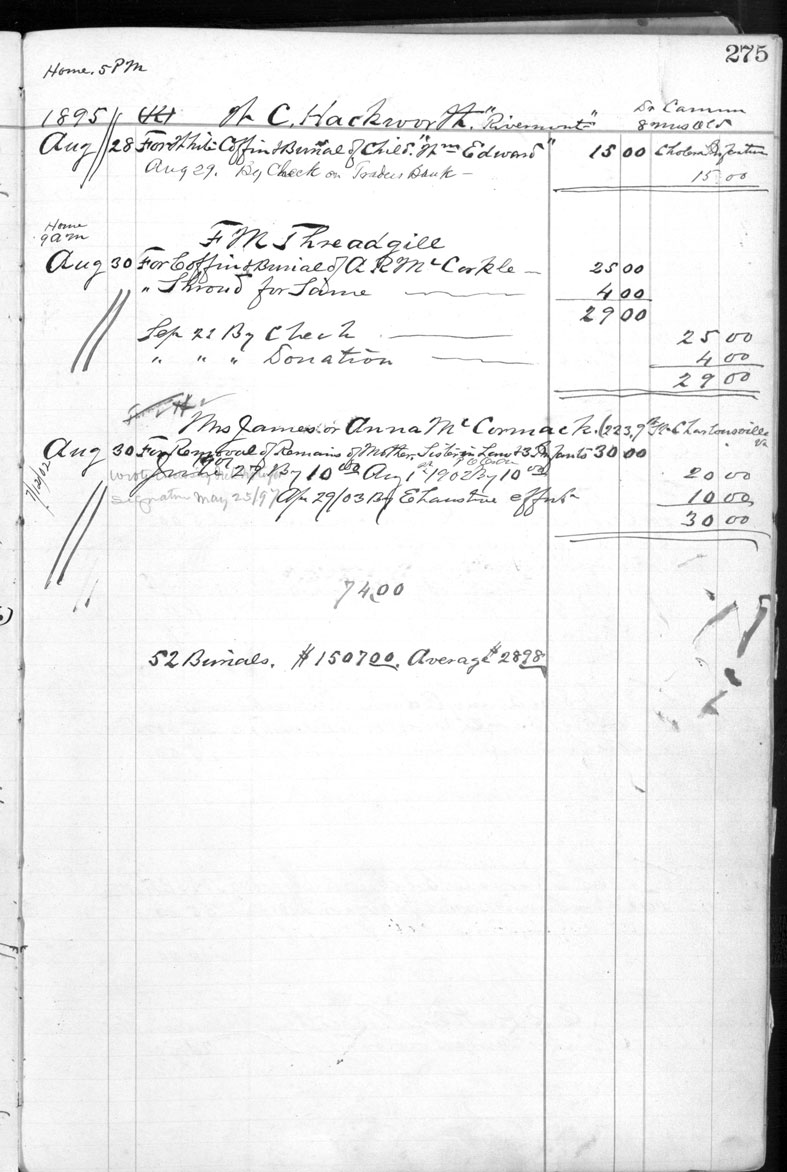 275
Home. 5 PM
1895 W. C. Hackworth. "Rivermont" Dr Cammm
8 mos Old
Aug 28 For White Coffin & Burial of Child. "Wm Edward" 15 00 Cholera Infantum
Aug 29. By Check on Traders Bank – 15 00
Home
9 am
F M Threadgill
Aug 30 For Coffin & Burial of A R McCorkle – 25 00
" Shroud for Same 4 00
29 00
Sep 21 By Check 25 00
" " " Donation 4 00
29 00
Mrs James or Anna McCormack. (223, 9th St Charlottesville Va
Aug 30 For Removal of Remains of Mother, Sister in Law & 3 Infants 30 00
27 By 10 00 Aug 1st 1902 By 10 00 20 00
wrote
signature May 25/97 Apr 29/03 By Exhaustive effort 10 00
30 00
7/20/22
74.00
52 Burials. $1507 00. Average $28 98